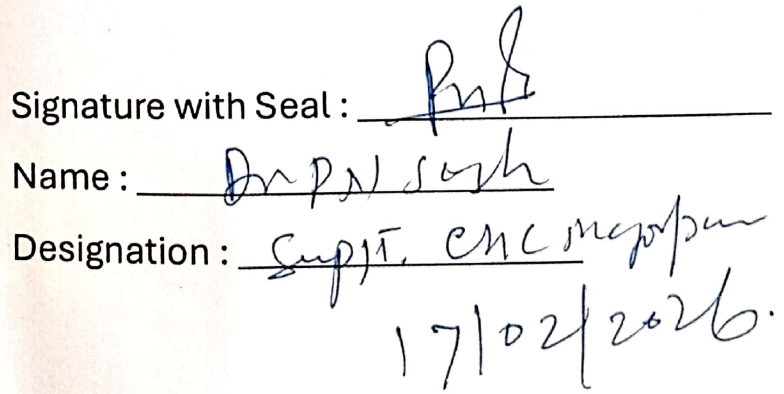 Signature with Seal :
Name : Dr P N
Designation : Supdt. CHC
17/02/2026.